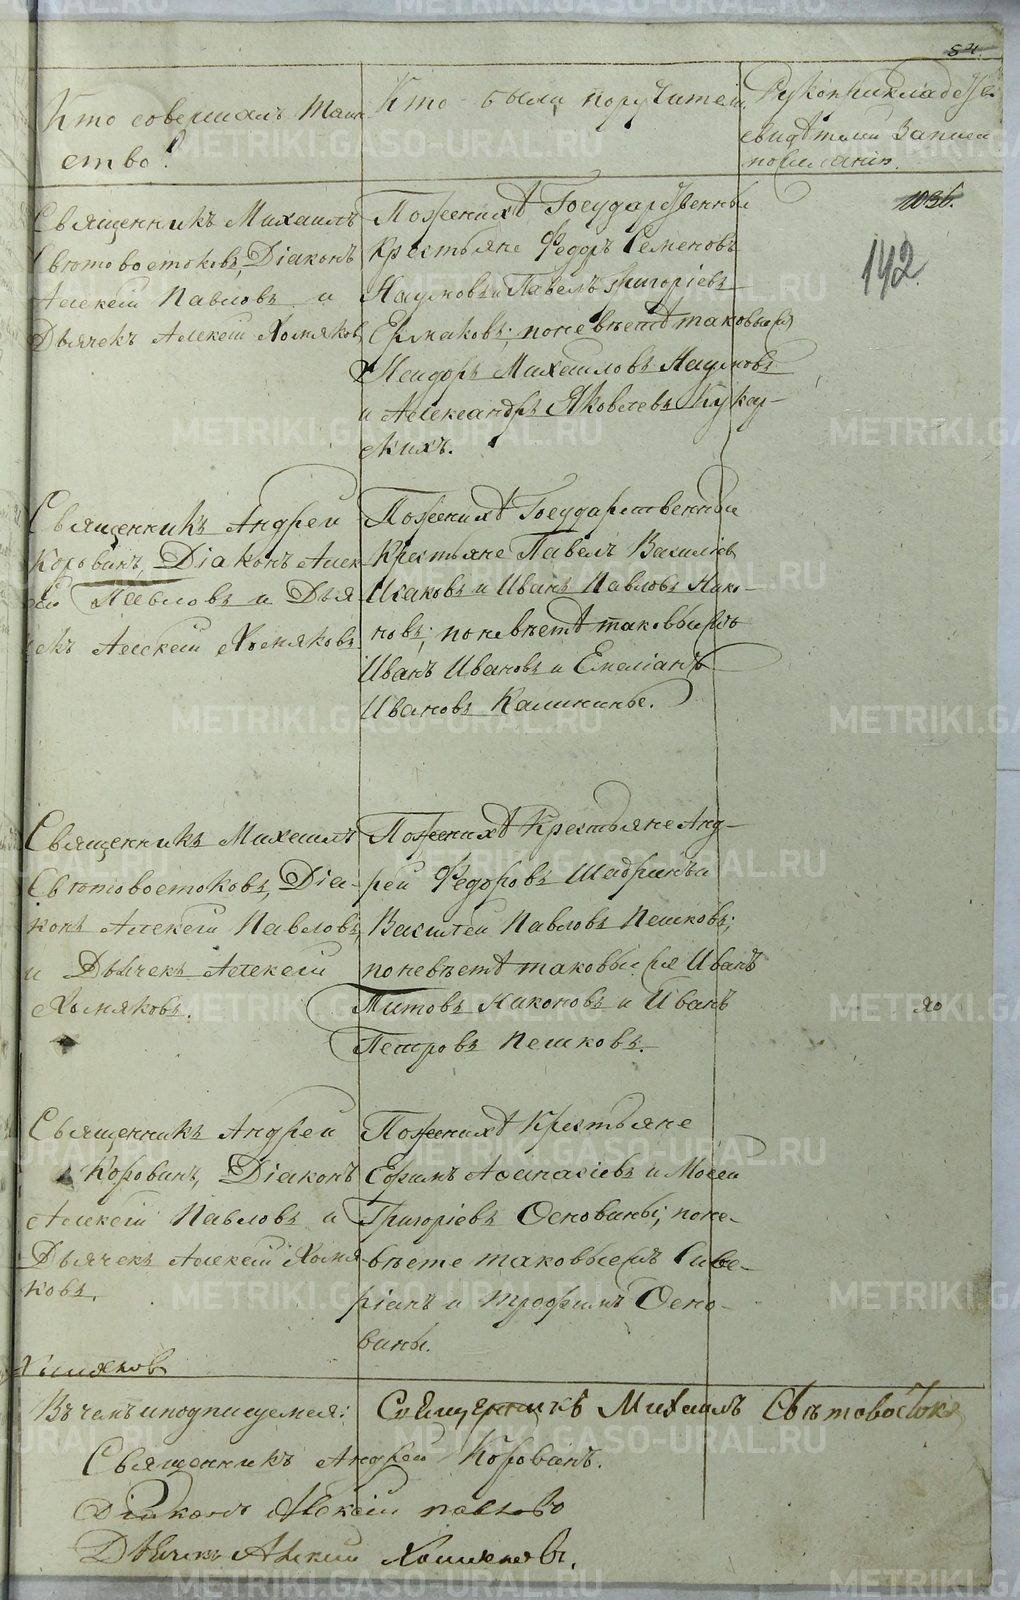 84.
Кто совершалъ Таин-
ство?
Кто были поручители.
Рукоприкладство
свидѣтелей записи
по желанію.
103б.
142.
Священникъ Михаилъ
Свѣтовостоковъ, Діаконъ
Алексѣй Павловъ и
Дьячекъ Алексѣй Хомяковъ
По женихѣ Государственные
Крестьяне Федоръ Семеновъ
Наумовъ и Павелъ Григорьевъ
Ермаковъ; по невѣстѣ таковые жъ
Исидоръ Михайловъ Наумовъ
и Александръ Яковлевъ Кукар-
скихъ.
Священникъ Андрей
Корованъ, Діаконъ Алек-
сѣй Павловъ и Дья-
чекъ Алексѣй Хомяковъ
По женихѣ Государственныи
Крестьяне Павелъ Василіевъ
Исаковъ и Иванъ Павловъ Нико-
новъ; по невѣстѣ таковые жъ
Иванъ Ивановъ и Емеліанъ
Ивановъ Калинины.
Священникъ Михаилъ
Свѣтовостоковъ, Діа-
конъ Алексѣй Павловъ,
и Дьячекъ Алексѣй
Хомяковъ.
По женихѣ Крестьяне Анд-
рей Федоровъ Шадринъ и
Василей Павловъ Пешковъ;
по невѣстѣ таковые же Иванъ
Титовъ Никоновъ и Иванъ
Петровъ Пешковъ.
Священникъ Андрей
Корованъ, Діаконъ
Алексѣй Павловъ и
Дьячекъ Алексѣй Хомя-
ковъ.
По женихѣ Крестьяне
Ефимъ Афанасіевъ и Мосей
Григоріевъ Основины; по не-
вѣсте таковые жъ Севе-
ріанъ и Трофимъ Осно-
вины.
Хомяковъ
Въ чемъ и подписуемся: Священникъ Михаилъ Свѣтовостоковъ
Священникъ Андрей Корованъ.
Діаконъ Алексѣй Павловъ
Дьячекъ Алексѣй Хомяковъ.
METRIKI.GASO-URAL.RU